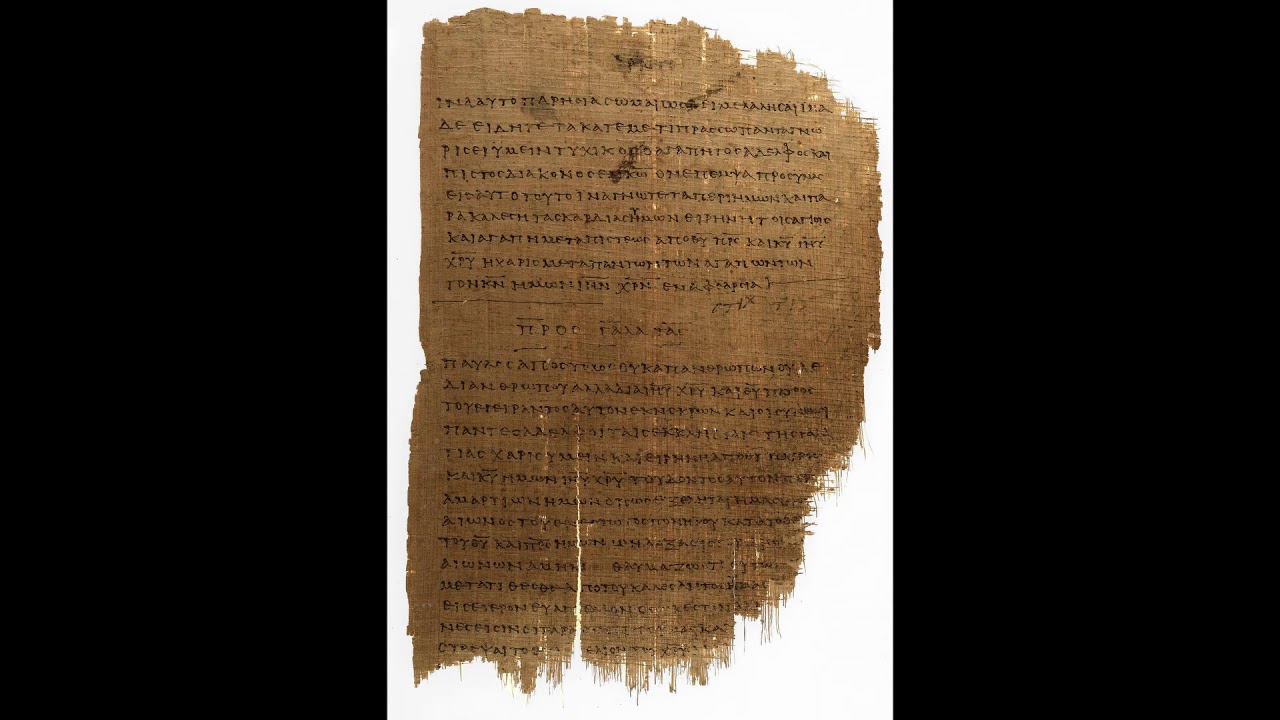 ΙΝΑ ΑΥΤΟ ΠΑΡΗϹΙΑϹΩΜΑΙ ΩϹ ΔΕΙ ΜΕ ΛΑΛΗϹΑΙ ΙΝΑ
ΔΕ ΕΙΔΗΤΕ ΤΑ ΚΑΤ ΕΜΕ ΤΙ ΠΡΑϹϹΩ ΠΑΝΤΑ ΓΝΩ
ΡΙϹΕΙ ΥΜΕΙΝ ΤΥΧΙΚΟϹ Ο ΑΓΑΠΗΤΟϹ ΑΔΕΛΦΟϹ ΚΑΙ
ΠΙϹΤΟϹ ΔΙΑΚΟΝΟϹ ΕΝ Κ̅Ω̅ ΟΝ ΕΠΕΜΨΑ ΠΡΟϹ ΥΜΑϹ
ΕΙϹ ΑΥΤΟ ΤΟΥΤΟ ΙΝΑ ΓΝΩΤΕ ΤΑ ΠΕΡΙ ΗΜΩΝ ΚΑΙ ΠΑ
ΡΑΚΑΛΕϹΗ ΤΑϹ ΚΑΡΔΙΑϹ ΗΜΩΝ ΕΙΡΗΝΗ ΤΟΙϹ ΑΓΙΟΙϹ
ΚΑΙ ΑΓΑΠΗ ΜΕΤΑ ΠΙϹΤΕΩϹ ΑΠΟ Θ̅Υ̅ Π̅Ρ̅Ϲ̅ ΚΑΙ Κ̅Υ̅ Ι̅Η̅Υ̅
Χ̅Ρ̅Υ̅ Η ΧΑΡΙϹ ΜΕΤΑ ΠΑΝΤΩΝ ΤΩΝ ΑΓΑΠΩΝΤΩΝ
ΤΟΝ Κ̅Ν̅ ΗΜΩΝ Ι̅Η̅Ν̅ Χ̅Ρ̅Ν̅ ΕΝ ΑΦΘΑΡϹΙΑ
ΠΡΟϹ ΓΑΛΑΤΑϹ
ΠΑΥΛΟϹ ΑΠΟϹΤΟΛΟϹ ΟΥΚ ΑΠ ΑΝΘΡΩΠΩΝ ΟΥΔΕ
ΔΙ ΑΝΘΡΩΠΟΥ ΑΛΛΑ ΔΙΑ Ι̅Η̅Υ̅ Χ̅Ρ̅Υ̅ ΚΑΙ Θ̅Υ̅ ΠΑΤΡΟϹ
ΤΟΥ ΕΓΕΙΡΑΝΤΟϹ ΑΥΤΟΝ ΕΚ ΝΕΚΡΩΝ ΚΑΙ ΟΙ ϹΥΝ ΕΜΟΙ
ΠΑΝΤΕϹ ΑΔΕΛΦΟΙ ΤΑΙϹ ΕΚΚΛΗϹΙΑΙϹ ΤΗϹ ΓΑΛΑ
ΤΙΑϹ ΧΑΡΙϹ ΥΜΙΝ ΚΑΙ ΕΙΡΗΝΗ ΑΠΟ Θ̅Υ̅
ΚΑΙ Κ̅Υ̅ ΗΜΩΝ Ι̅Η̅Υ̅ Χ̅Ρ̅Υ̅ ΤΟΥ ΔΟΝΤΟϹ ΑΥΤΟΝ ΠΕΡΙ
ΑΜΑΡΤΙΩΝ ΗΜΩΝ ΟΠΩϹ ΕΞΕΛΗΤΑΙ ΗΜΑϹ
ΑΙΩΝΟϹ ΤΟΥ ΠΟΝΗΡΟΥ ΚΑΤΑ ΤΟ
ΤΟΥ Θ̅Υ̅ ΚΑΙ Π̅Ρ̅Ϲ̅ ΗΜΩΝ Ω Η ΔΟΞΑ ΕΙϹ
ΑΙΩΝΩΝ ΑΜΗΝ ΘΑΥΜΑΖΩ ΟΤΙ
ΜΕΤΑΤΙΘΕϹΘΕ ΑΠΟ ΤΟΥ
ΕΙϹ ΕΤΕΡΟΝ ΕΥΑΓΓΕΛΙΟΝ Ο ΟΥΧ ΕϹΤΙΝ